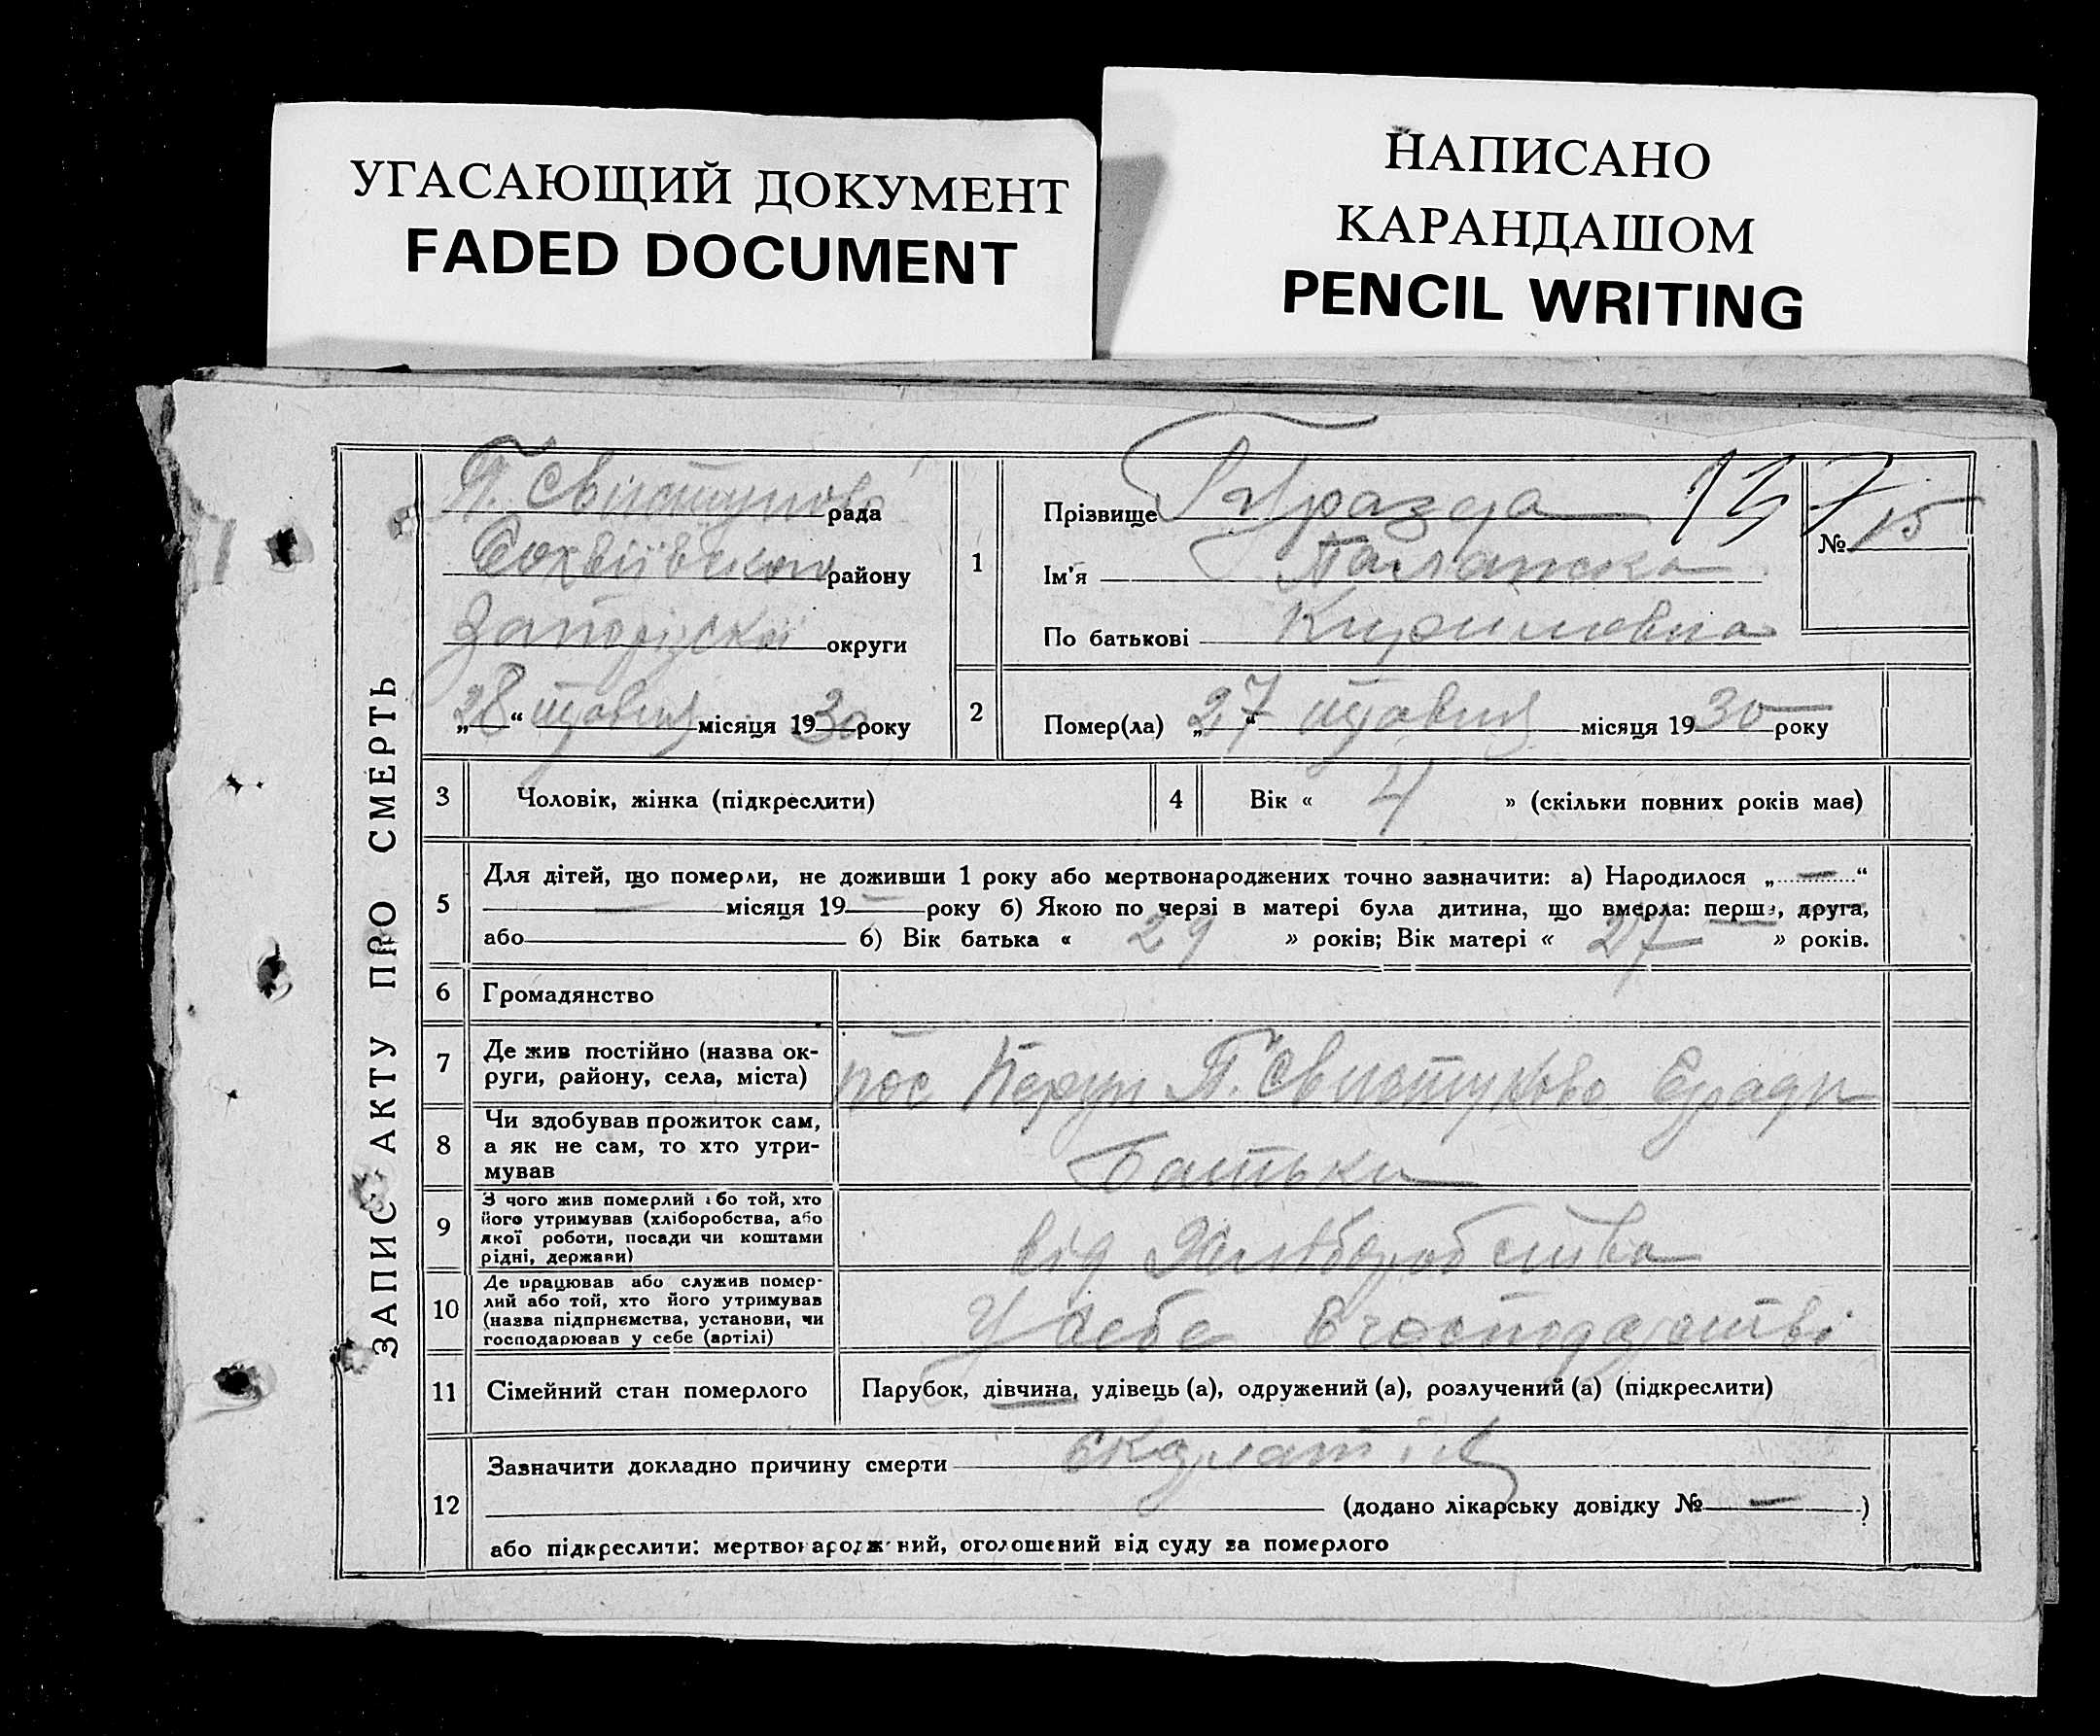 УГАСАЮЩИЙ ДОКУМЕНТ
FADED DOCUMENT
НАПИСАНО
КАРАНДАШОМ
PENCIL WRITING
ЗАПИС АКТУ ПРО СМЕРТЬ
П. Свистунова рада
Софіївського району
Запорізької округи
„28“ травня місяця 1930 року
1
Прізвище
137
№ 15
Ім'я
По батькові Кириловна
2
Помер(ла) „27“ травня місяця 1930 року
3 Чоловік, жінка (підкреслити)
4 Вік « 4 » (скільки повних років має)
5
Для дітей, що померли, не доживши 1 року або мертвонароджених точно зазначити: а) Народилося „—“
— місяця 19— року б) Якою по черзі в матері була дитина, що вмерла: перша, друга,
або б) Вік батька « 29 » років; Вік матері « 27 » років.
6 Громадянство
7
Де жив постійно (назва ок-
руги, району, села, міста)
пос П. Свистунова с/ради
8
Чи здобував прожиток сам,
а як не сам, то хто утри-
мував
Батьки
9
З чого жив померлий або той, хто
його утримував (хліборобства, або
якої роботи, посади чи коштами
рідні, держави)
від Хліборобства
10
Де працював або служив помер-
лий або той, хто його утримував
(назва підприємства, установи, чи
господарював у себе (артілі)
У себе в господарстві
11 Сімейний стан померлого
Парубок, дівчина, удівець (а), одружений (а), розлучений (а) (підкреслити)
12
Зазначити докладно причину смерти
(додано лікарську довідку № — )
або підкреслити: мертвонароджений, оголошений від суду за померлого